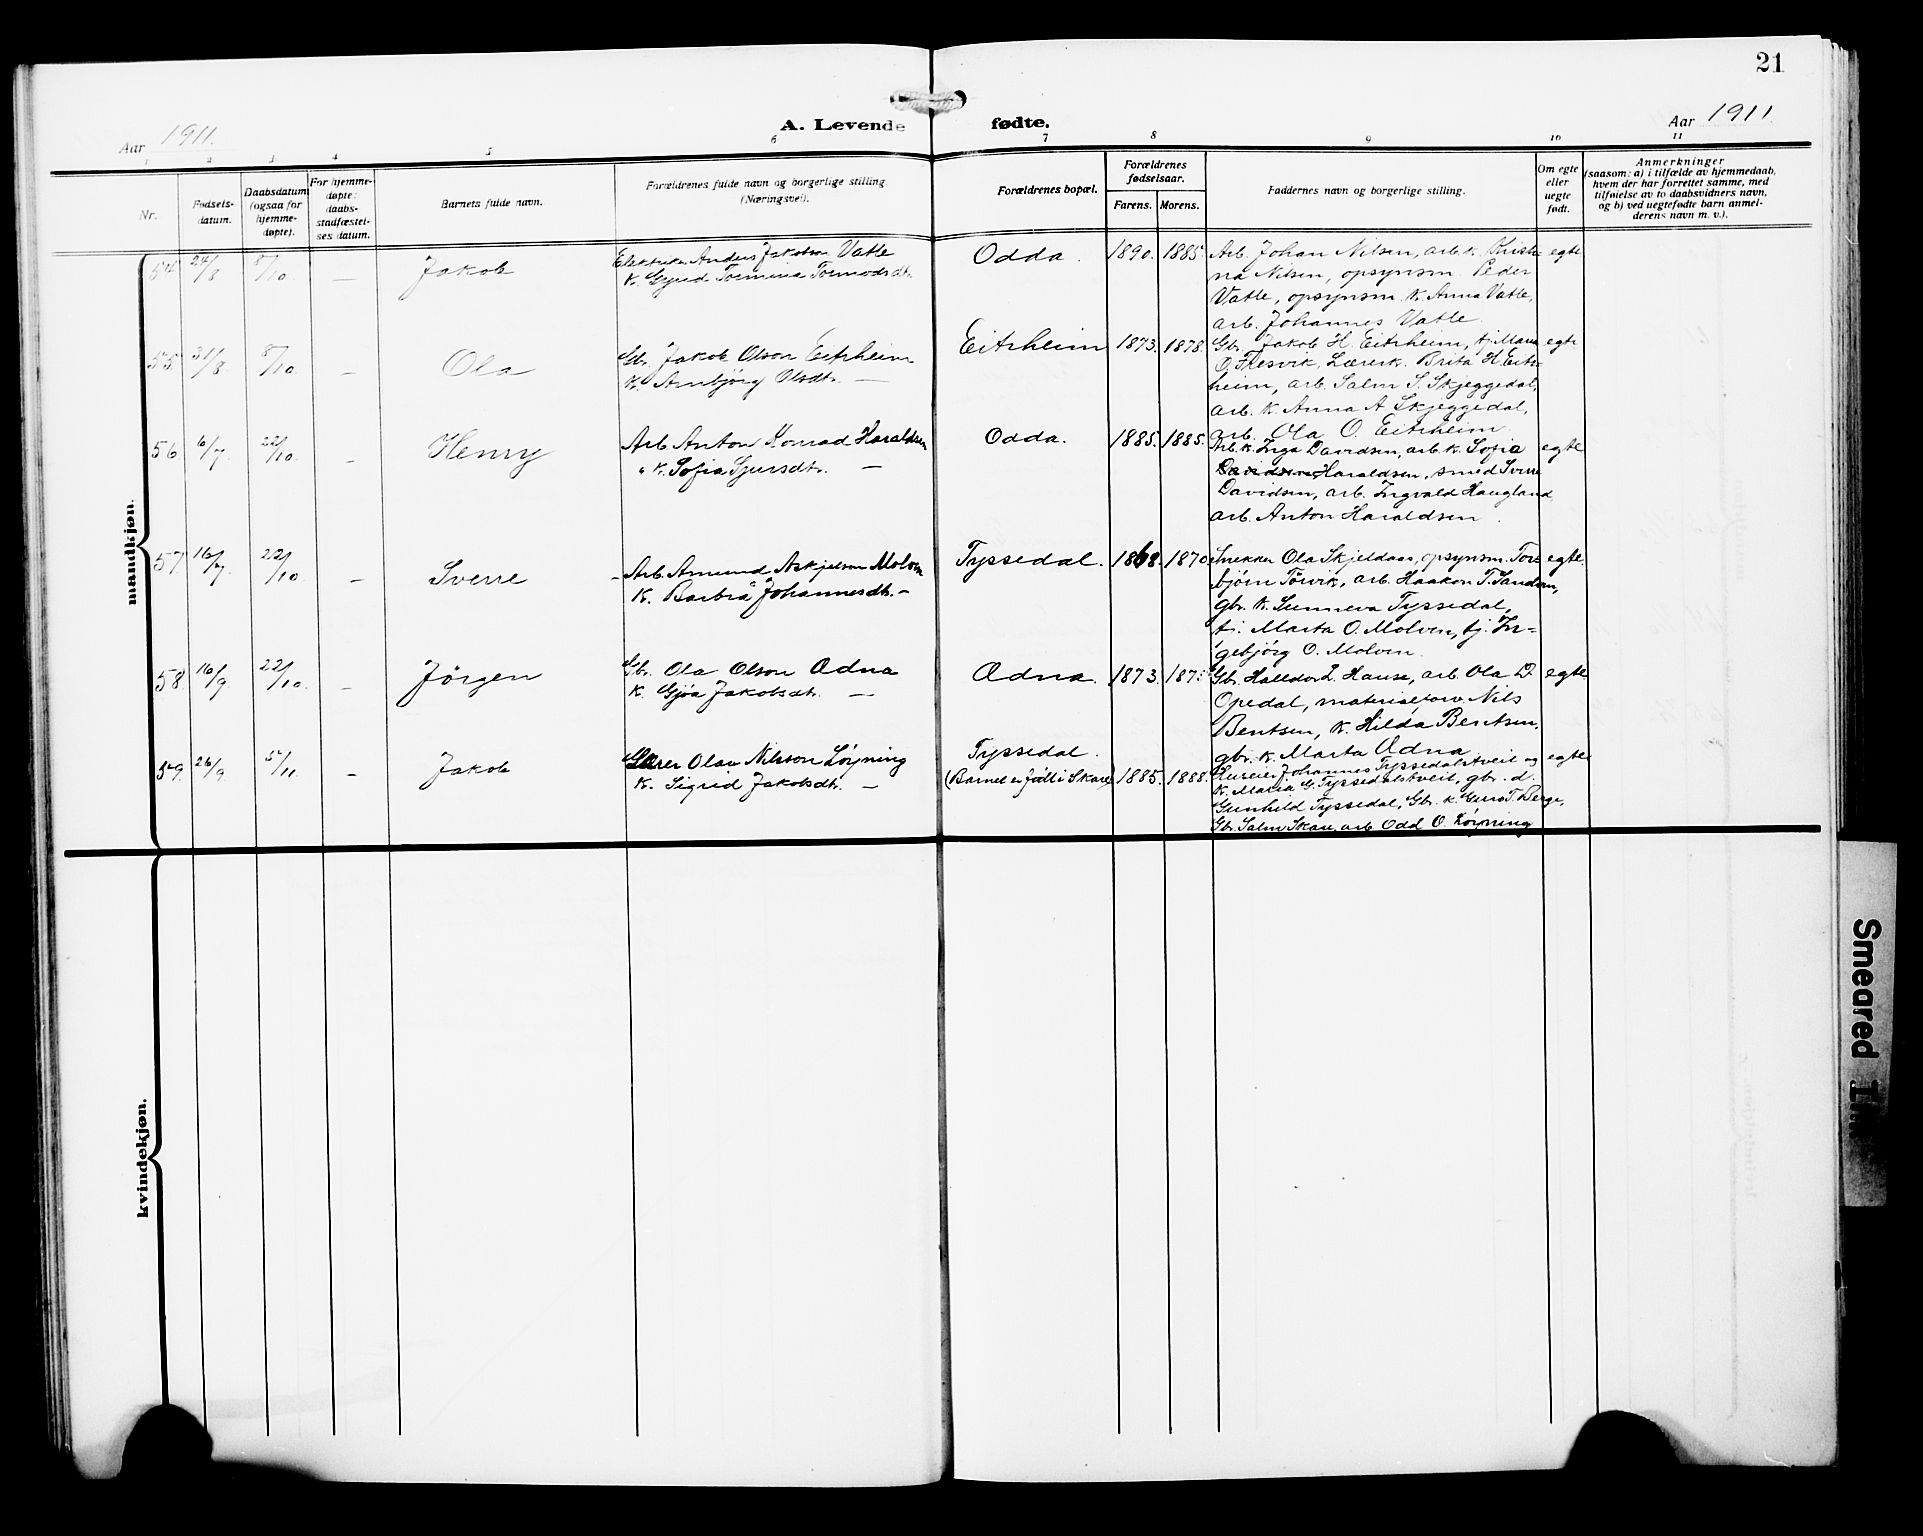 21
Aar 1911.
A. Levende fødte.
Aar 1911
1 2 3 4 5 6 7 8 9 10 11
Nr.
Fødsels-
datum.
Daabsdatum
(ogsaa for
hjemme-
døpte).
For hjemme-
døpte:
daabs-
stadfæstel-
ses datum.
Barnets fulde navn.
Forældrenes fulde navn og borgerlige stilling.
(Næringsvei).
Forældrenes bopæl.
Forældrenes
fødselsaar.
Farens. Morens.
Faddernes navn og borgerlige stilling.
Om egte
eller
uegte
født.
Anmerkninger
(saasom: a) i tilfælde av hjemmedaab,
hvem der har forrettet samme, med
tilføielse av to daabsvidners navn,
og b) ved uegtefødte barn anmel-
derens navn m. v.).
mandkjøn.
54 24/8 8/10 — Jakob
Anders Jakobson Vatle
K. Gyrid Tormina Tormodsdt.
Odda. 1890. 1885.
Arb. Johan Nilsen, arb. k. Kristi-
na Nilsen, opsynsm. Peder
Vatle, opsynsm. k. Anna Vatle,
arb. Johannes Vatle.
egte
55. 31/8 8/10. — Ola
Gbr. Jakob Olson Eitrheim
K. Arnbjørg Olsdt. —
Eitrheim 1873. 1878.
Gbr. Jakob H. Eitrheim, tj. Maria
O. Flesvik, Lærerk. Brita H. Eitr-
heim, arb. Salm S. Skjeggedal,
arb. k. Anna A Skjeggedal,
arb. Ola O. Eitrheim
egte
56 6/7 22/10. — Henry
Arb. Anton Konrad Haraldsen
" K. Sofia Sjursdt. —
Odda. 1885. 1885.
Arb. k. Inga Davidsen, arb. k. Sofia
Davidsen Haraldsen, smed Sverre
Davidsen, arb. Ingvald Haugland
arb. Anton Haraldsen.
egte
57 16/7. 22/10 — Sverre
Arb. Amund Askjelson Molven
K. Barbra Johannesdt. —
Tyssedal. 1868. 1870.
Snekker Ola Skjeldaas, opsynsm. Tor-
bjørn Tørvik, arb. Haakon T. Sandven,
gbr. k. Sunneva Tyssedal,
tj. Marta O. Molven, tj. In-
gebjørg O. Molven.
egte.
58. 16/9. 22/10. — Jørgen
Gbr. Ola Olson Ædna
K. Gjøa Jakobsdt. —
Ædna. 1873.
Gbr. Halldor L. Hause, arb. Ola D.
Opedal, materialforv. Nils
Bentsen, k. Hilda Bentsen,
gbr. k. Marta Ædna
egte
59. 26/9. 5/11. — Jakob
Olav Nilsson Løyning
K. Sigrid Jakobsdt. —
Tyssedal.
(Barnet er født i Skare) 1885. 1888.
Johannes Tyssedalstveit og
k. Maria G. Tyssedalstveit, gbr. d.
Gunhild Tyssedal, Gbr. k. Guro T. Berge,
Gbr. Salm Skare, arb. Odd O. Løyning
egte
kvindekjøn.
Smeared